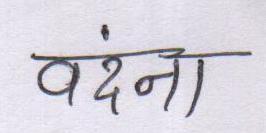 वदंना